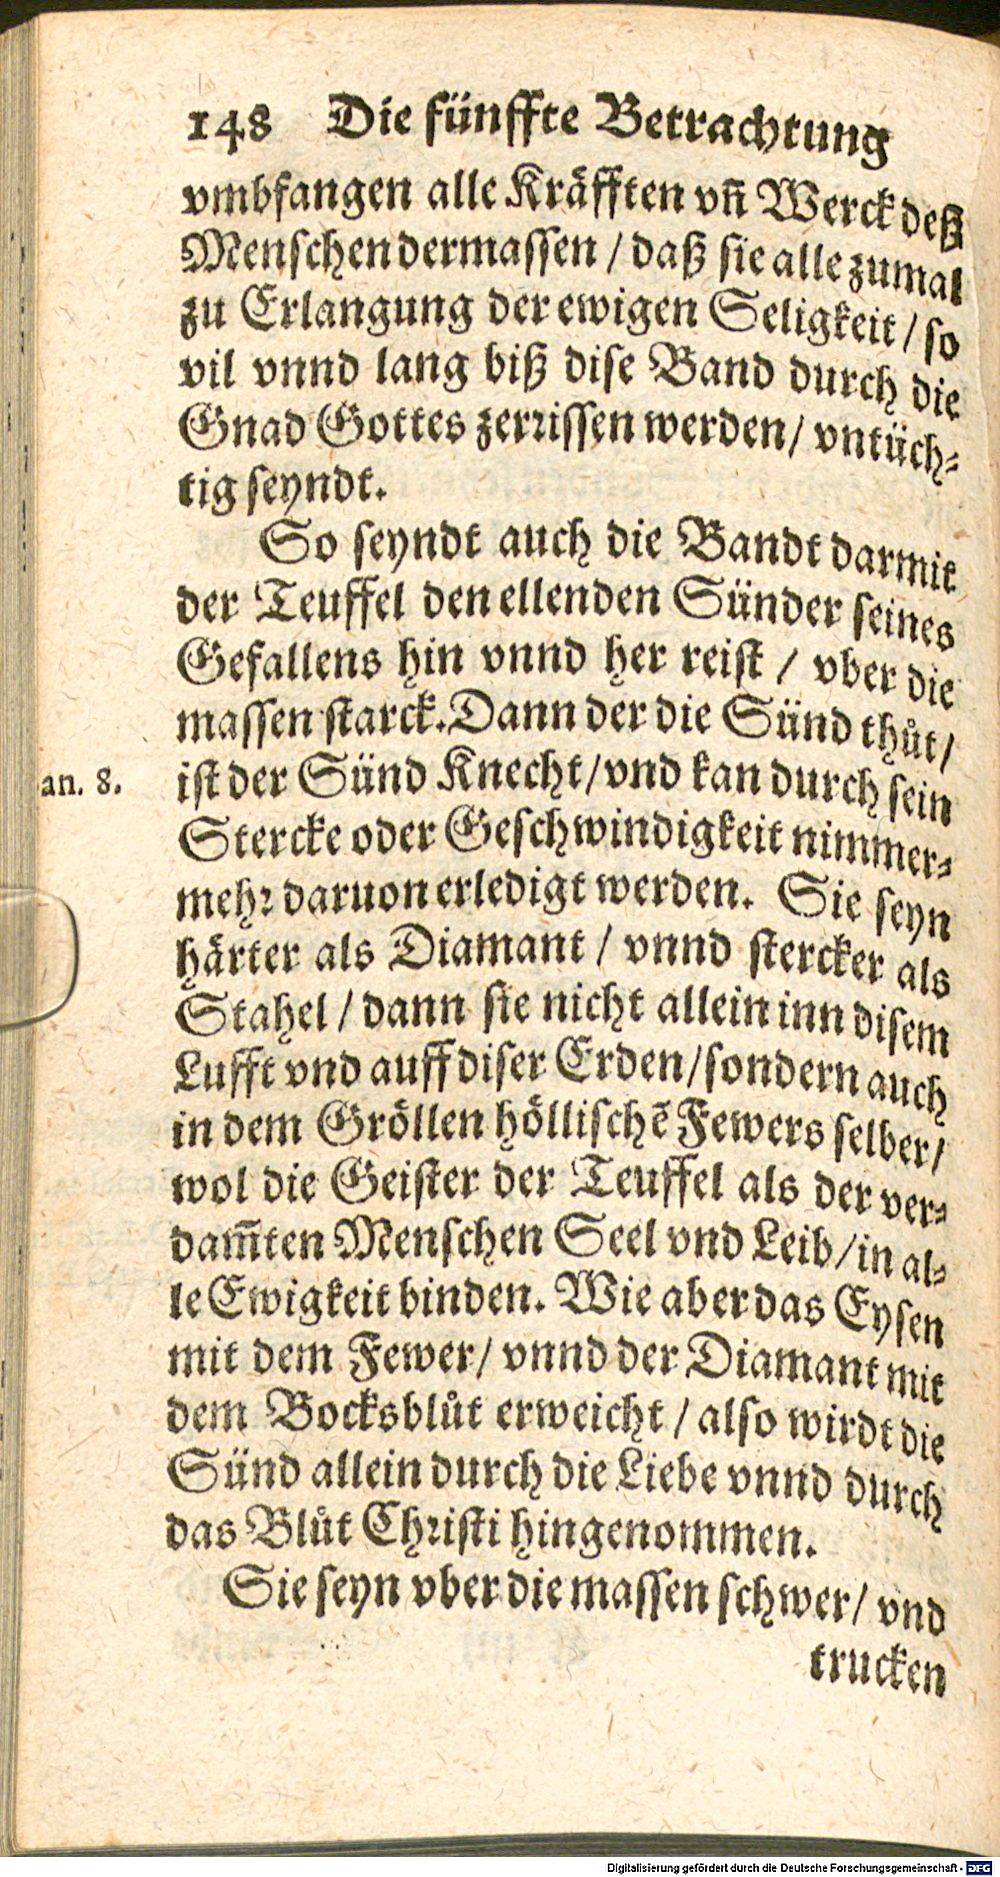 148 Die fünffte Betrachtung
vmbfangen alle Kräfften vñ Werck deß
Menschen dermassen / daß sie alle zumal
zu Erlangung der ewigen Seligkeit / so
vil vnnd lang biß dise Band durch die
Gnad Gottes zerrissen werden / vntüch-
tig seyndt.
So seyndt auch die Bandt darmit
der Teuffel den ellenden Sünder seines
Gefallens hin vnnd her reist / vber die
massen starck. Dann der die Sünd thůt /
an. 8.
ist der Sünd Knecht / vnd kan durch sein
Stercke oder Geschwindigkeit nimmer-
mehr daruon erledigt werden. Sie seyn
härter als Diamant / vnnd stercker als
Stahel / dann sie nicht allein inn disem
Lufft vnd auff diser Erden / sondern auch
in dem Gröllen höllischē Fewers selber /
wol die Geister der Teuffel als der ver-
dam̃ten Menschen Seel vnd Leib / in al-
le Ewigkeit binden. Wie aber das Eysen
mit dem Fewer / vnnd der Diamant mit
dem Bocksblůt erweicht / also wirdt die
Sünd allein durch die Liebe vnnd durch
das Blůt Christi hingenommen.
Sie seyn vber die massen schwer / vnd
trucken
Digitalisierung gefördert durch die Deutsche Forschungsgemeinschaft - DFG